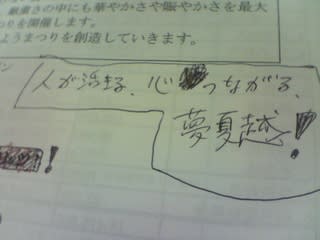 厳粛さの中にも華やかさや賑やかさを最大
つりを開催します。
ようまつりを創造していきます。
ン
人が治まる、心つながる、
夢夏越!
!